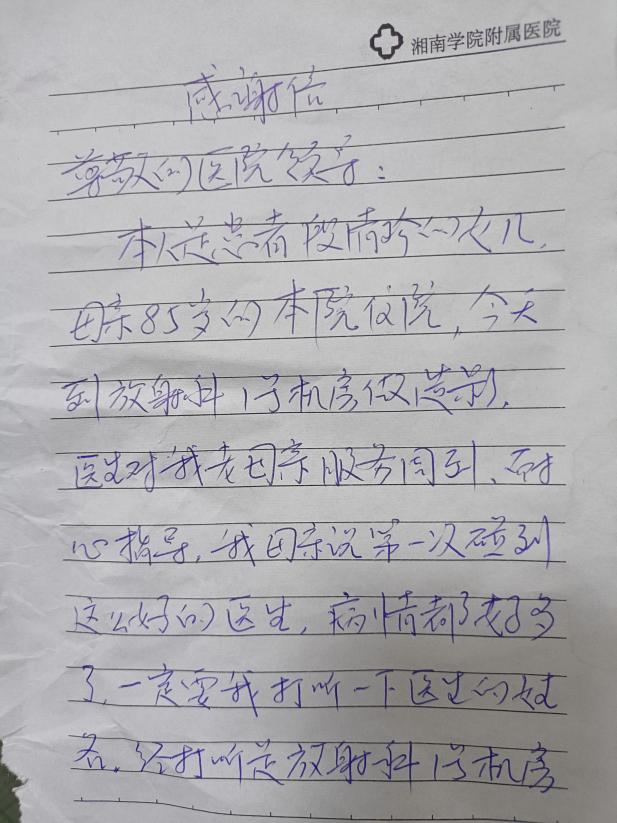 湘南学院附属医院
感谢信
尊敬的医院领导：
本人是患者段清珍的女儿，
母亲85岁的本院住院，今天
到放射科1号机房做造影，
医生对我老母亲服务周到、耐
心指导，我母亲说第一次碰到
这么好的医生，病情都好多
了，一定要我打听一下医生的姓
名，经打听是放射科1号机房